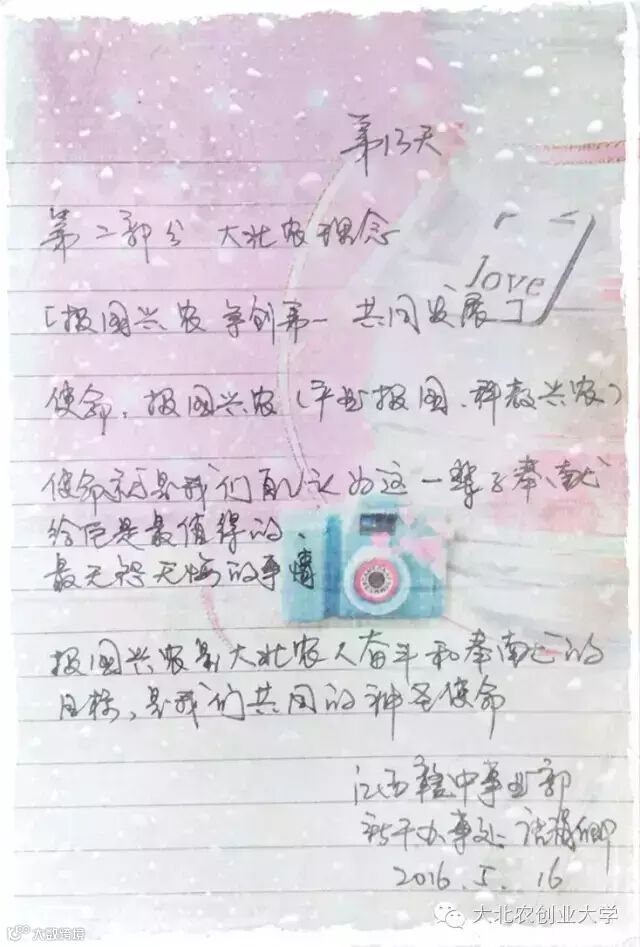 第13天
第二部分 大北农理念
「报国兴农 争创第一 共同发展」
使命：报国兴农（产业报国、科教兴农）
love
使命就是我们认为这一辈子奉献
给它是最值得的、
最无怨无悔的事情
报国兴农是大北农人奋斗和奉献的
目标，是我们共同的神圣使命
江西赣中事业部
新干办事处
2016.5.16
大北农创业大学
大数跨境